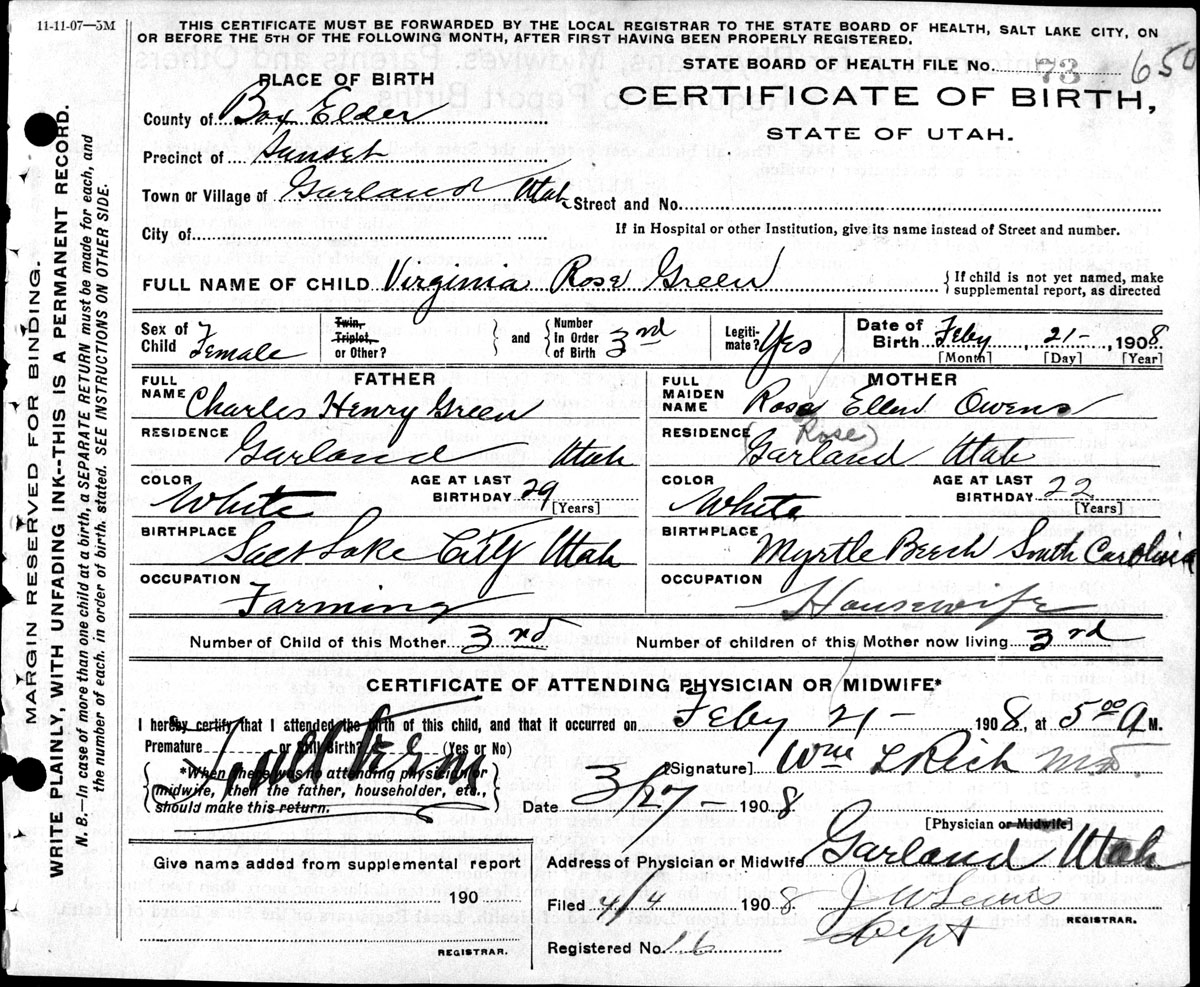 11-11-07—5M
THIS CERTIFICATE MUST BE FORWARDED BY THE LOCAL REGISTRAR TO THE STATE BOARD OF HEALTH, SALT LAKE CITY, ON
OR BEFORE THE 5TH OF THE FOLLOWING MONTH, AFTER FIRST HAVING BEEN PROPERLY REGISTERED.
STATE BOARD OF HEALTH FILE No. 73 650
PLACE OF BIRTH
CERTIFICATE OF BIRTH,
STATE OF UTAH.
County of Box Elder
Precinct of Sunset
Town or Village of Garland Utah Street and No.
City of
If in Hospital or other Institution, give its name instead of Street and number.
FULL NAME OF CHILD Virginia Rose Green { If child is not yet named, make
supplemental report, as directed
Sex of Child Female
Twin, Triplet, or Other? } and { Number In Order of Birth 3rd
Legiti-mate? Yes
Date of Birth Feby, 21-, 1908
[Month] [Day] [Year]
FATHER
FULL NAME Charles Henry Green
RESIDENCE Garland Utah
COLOR White AGE AT LAST BIRTHDAY 29 [Years]
BIRTHPLACE Salt Lake City Utah
OCCUPATION Farming
MOTHER
FULL MAIDEN NAME Rosa Ellen Owens
(Rose)
RESIDENCE Garland Utah
COLOR White AGE AT LAST BIRTHDAY 22 [Years]
BIRTHPLACE Myrtle Beech South Carolinia
OCCUPATION Housewife
Number of Child of this Mother 3rd Number of children of this Mother now living 3rd
CERTIFICATE OF ATTENDING PHYSICIAN OR MIDWIFE*
I hereby certify that I attended the birth of this child, and that it occurred on Feby 21- 1908, at 5 00 A M.
Premature or Still Birth? (Yes or No)
{ *When there was no attending physician or
midwife, then the father, householder, etc.,
should make this return. }
[Signature] Wm L Rich M.D.
Date 3/27- 1908
[Physician or Midwife]
Give name added from supplemental report
190
REGISTRAR.
Address of Physician or Midwife Garland Utah
Filed 4/4 1908 J W Lewis
REGISTRAR.
Dept
Registered No. 16
MARGIN RESERVED FOR BINDING.
WRITE PLAINLY, WITH UNFADING INK--THIS IS A PERMANENT RECORD.
N. B.—In case of more than one child at a birth, a SEPARATE RETURN must be made for each, and
the number of each, in order of birth, stated. SEE INSTRUCTIONS ON OTHER SIDE.